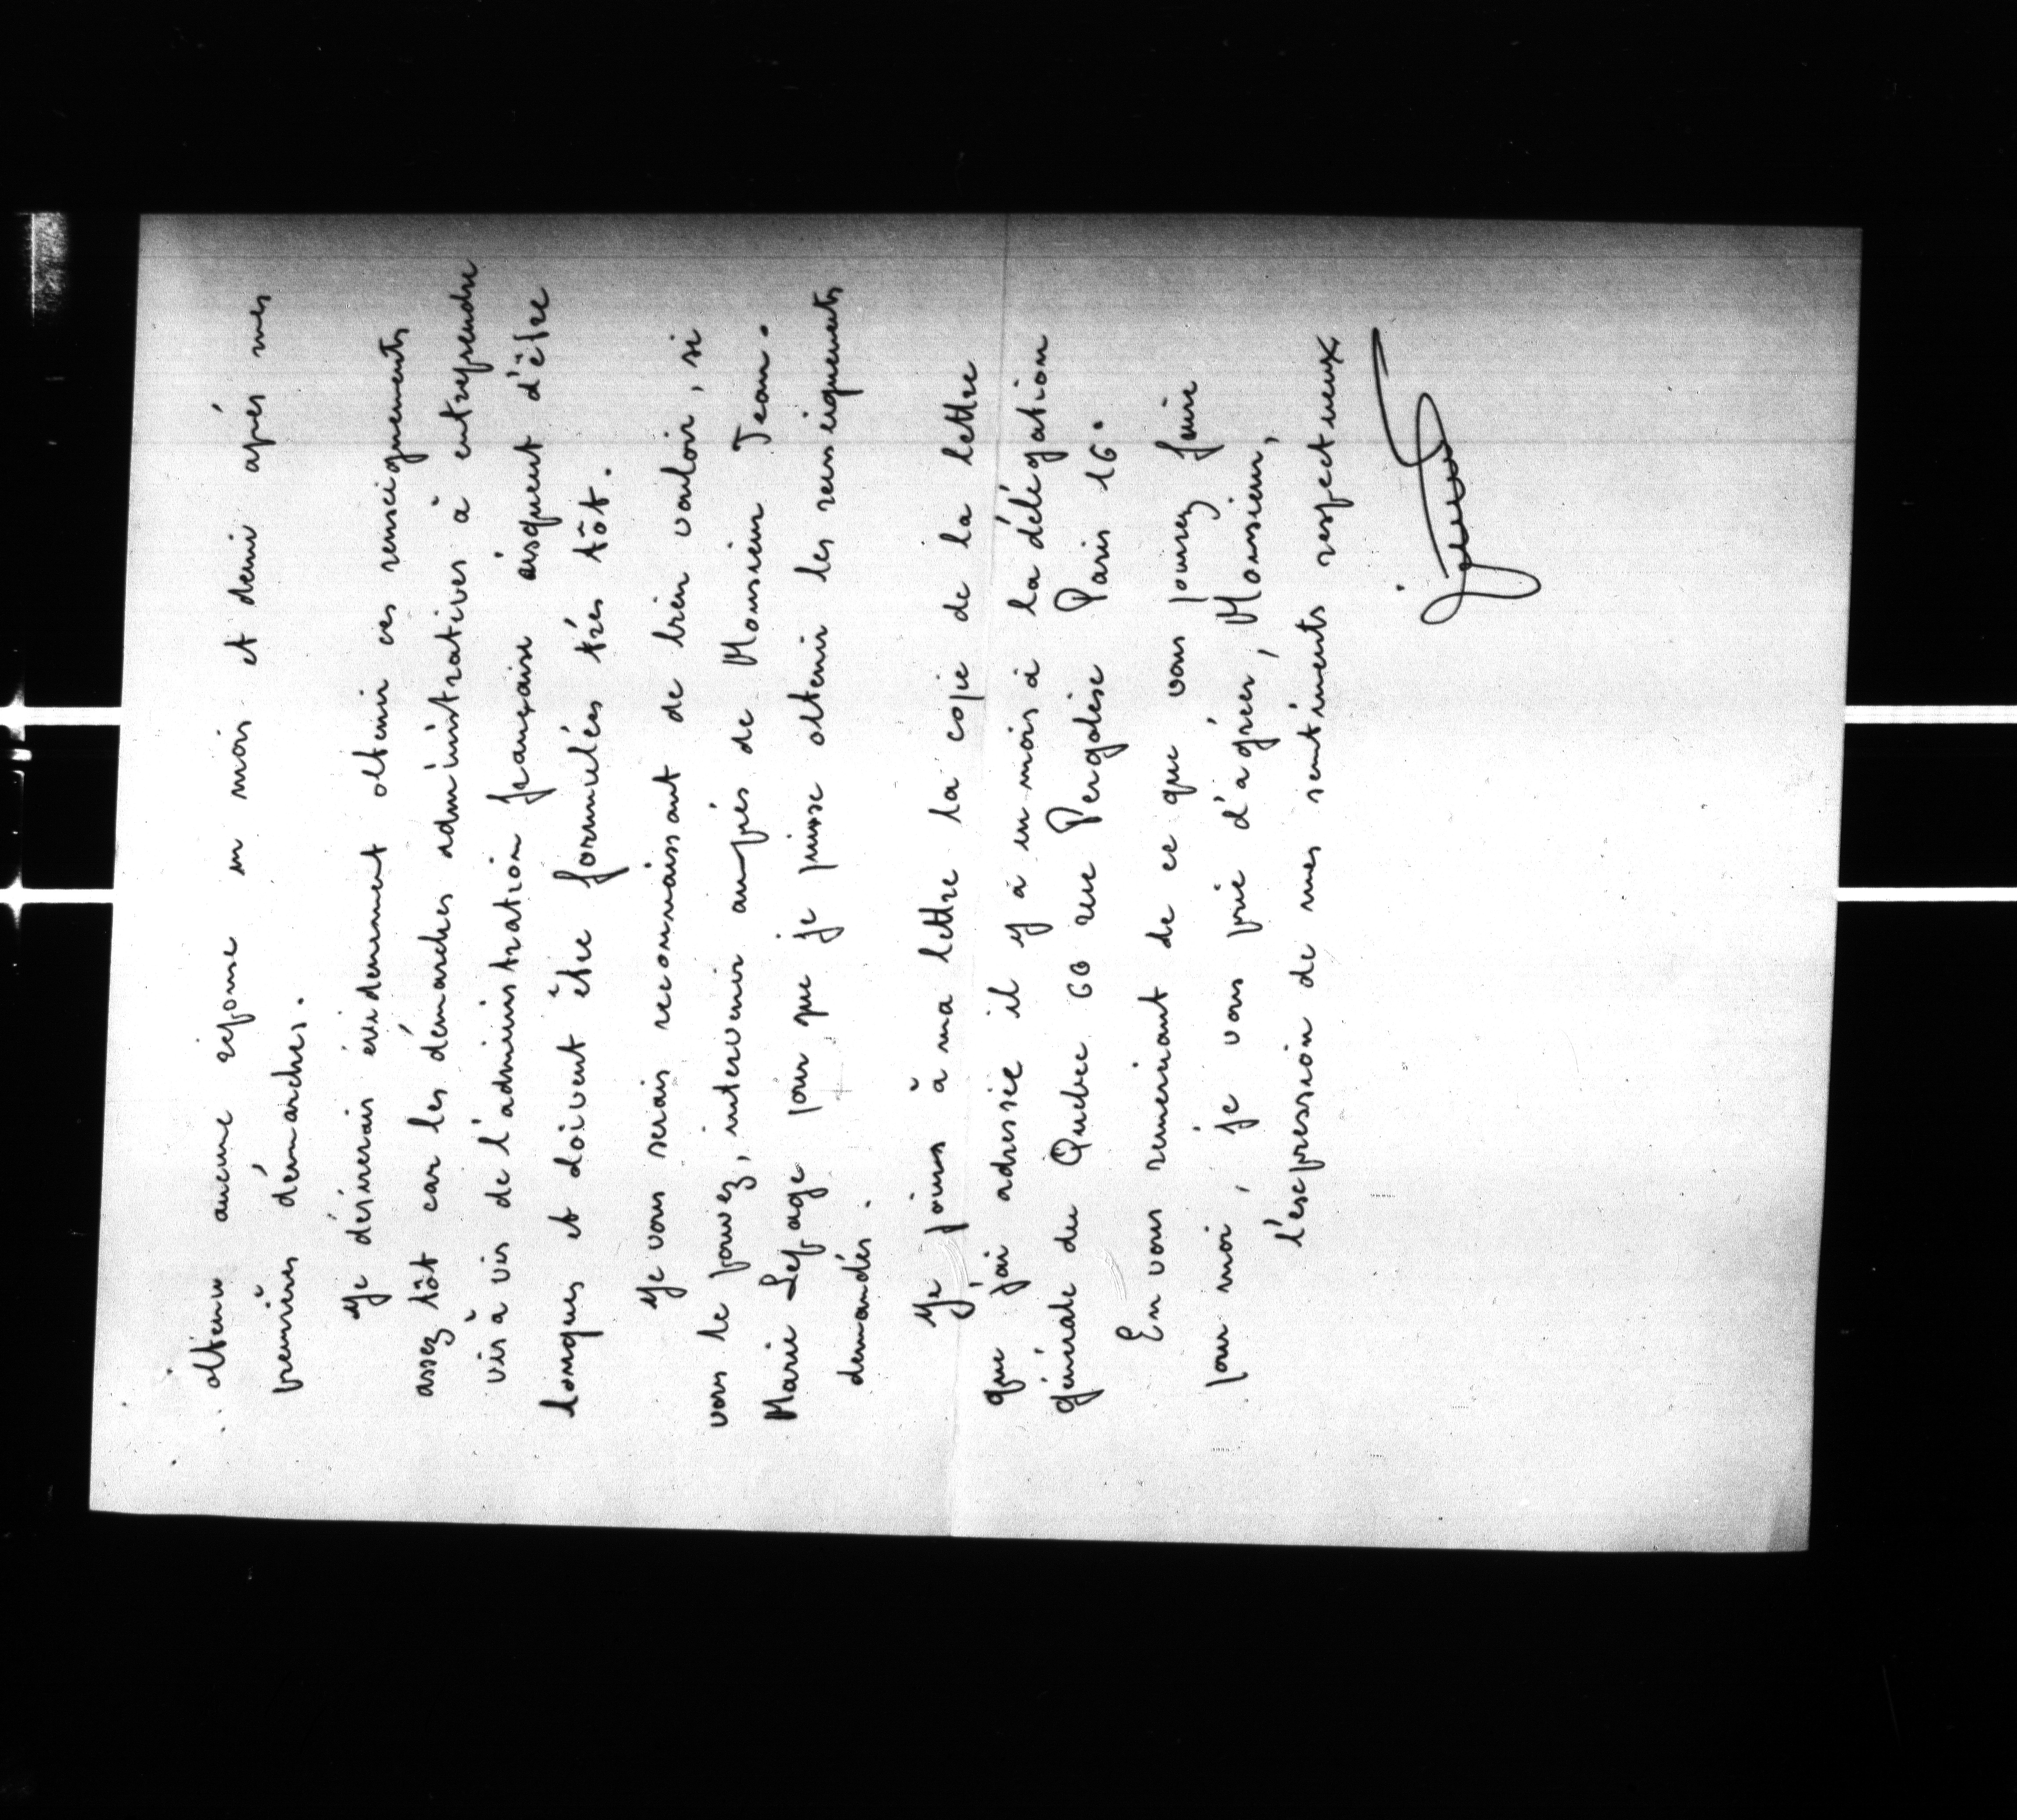 obtenu aucune réponse un mois et demi après mes
premières démarches.
Je désirerais évidemment obtenir ces renseignements
assez tôt car les démarches administratives à entreprendre
vis à vis de l'administration française risquent d'être
longues et doivent être formulées très tôt.
Je vous serais reconnaissant de bien vouloir, si
vous le pouvez, intervenir auprès de Monsieur Jean.
Marie Lepage pour que je puisse obtenir les renseignements
demandés.
Je joins à ma lettre la copie de la lettre
que j'ai adressée il y à un mois à la délégation
générale du Quebec 66 rue Pergolèse Paris 16.
En vous remerciant de ce que vous pourrez faire
pour moi, je vous prie d'agréer, Monsieur,
l'expression de mes sentiments respectueux